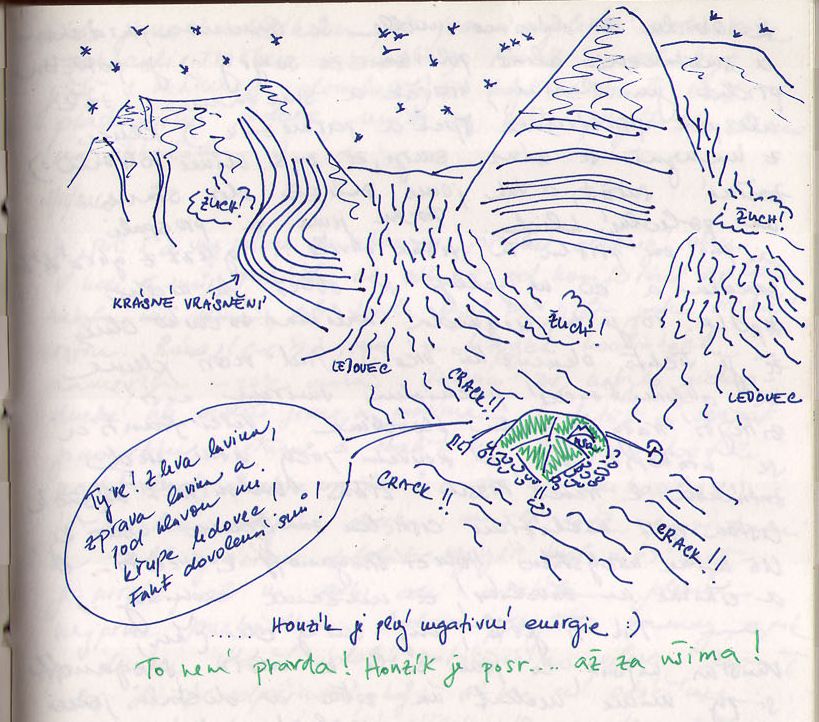 ŽUCH!
ŽUCH!
KRÁSNÉ VRÁSNĚNÍ
ŽUCH!
LEDOVEC
CRACK!!
LEDOVEC
Tyve! Zleva lavina,
zprava lavina a
pod hlavou mi
křupe ledovec!
Fakt dovolení snů!
CRACK!!
CRACK!!
...... Honzík je plný negativní energie :)
To není pravda! Honzík je posr.... až za ušima!